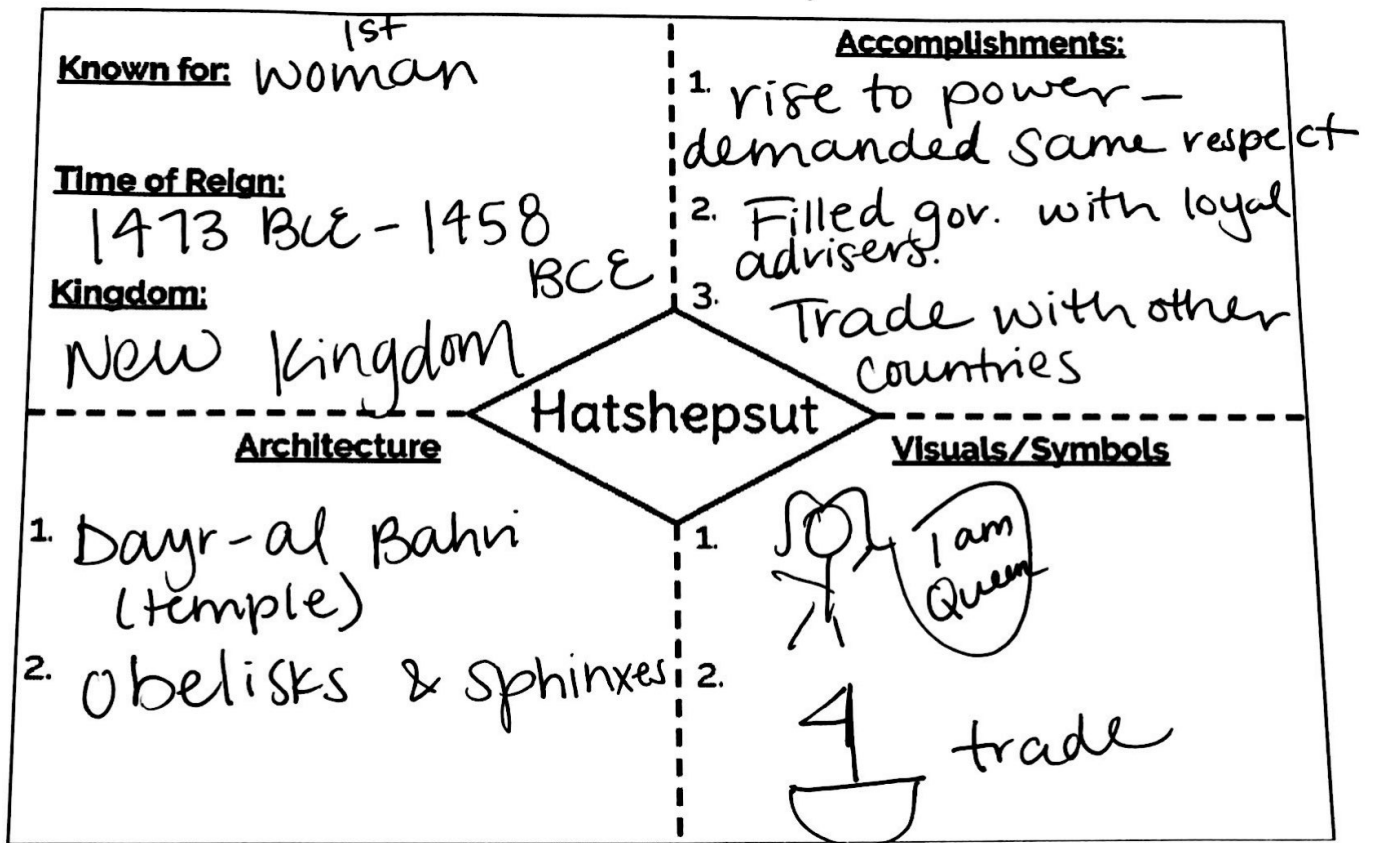 Known for: 1st woman
Time of Reign:
1473 BCE - 1458
BCE
Kingdom:
New Kingdom
Accomplishments:
1. rise to power -
demanded same respect
2. Filled gov. with loyal
advisers.
3. Trade with other
countries
Hatshepsut
Architecture
1. Dayr-al Bahri
(temple)
2. Obelisks & sphinxes
Visuals/Symbols
1. I am
Queen
2. trade